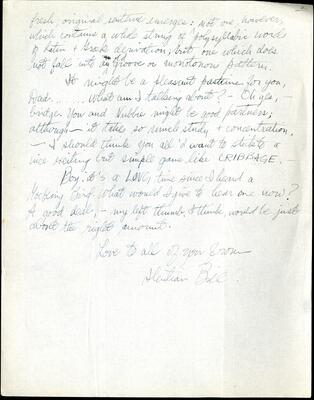 fresh, original sentence emerges: not one, however,
which contains a whole string of polysyllabic words
of Latin & Greek derivation; but one which does
not fall into a groove or monotonous pattern.
It might be a pleasant pastime for you,
Dad....... what am I talking about? - Oh yes, -
bridge. You and might be good partners;
although - it takes so much study & concentration.
- I should think you all'd want to to a
nice but simple game like CRIBBAGE. -
Boy, it's a LONG time since I heard a
Mocking bird. What would I give to hear one now?
A good deal, - my left thumb, I think, would be just
about the right amount.
Love to all of you from
Bill